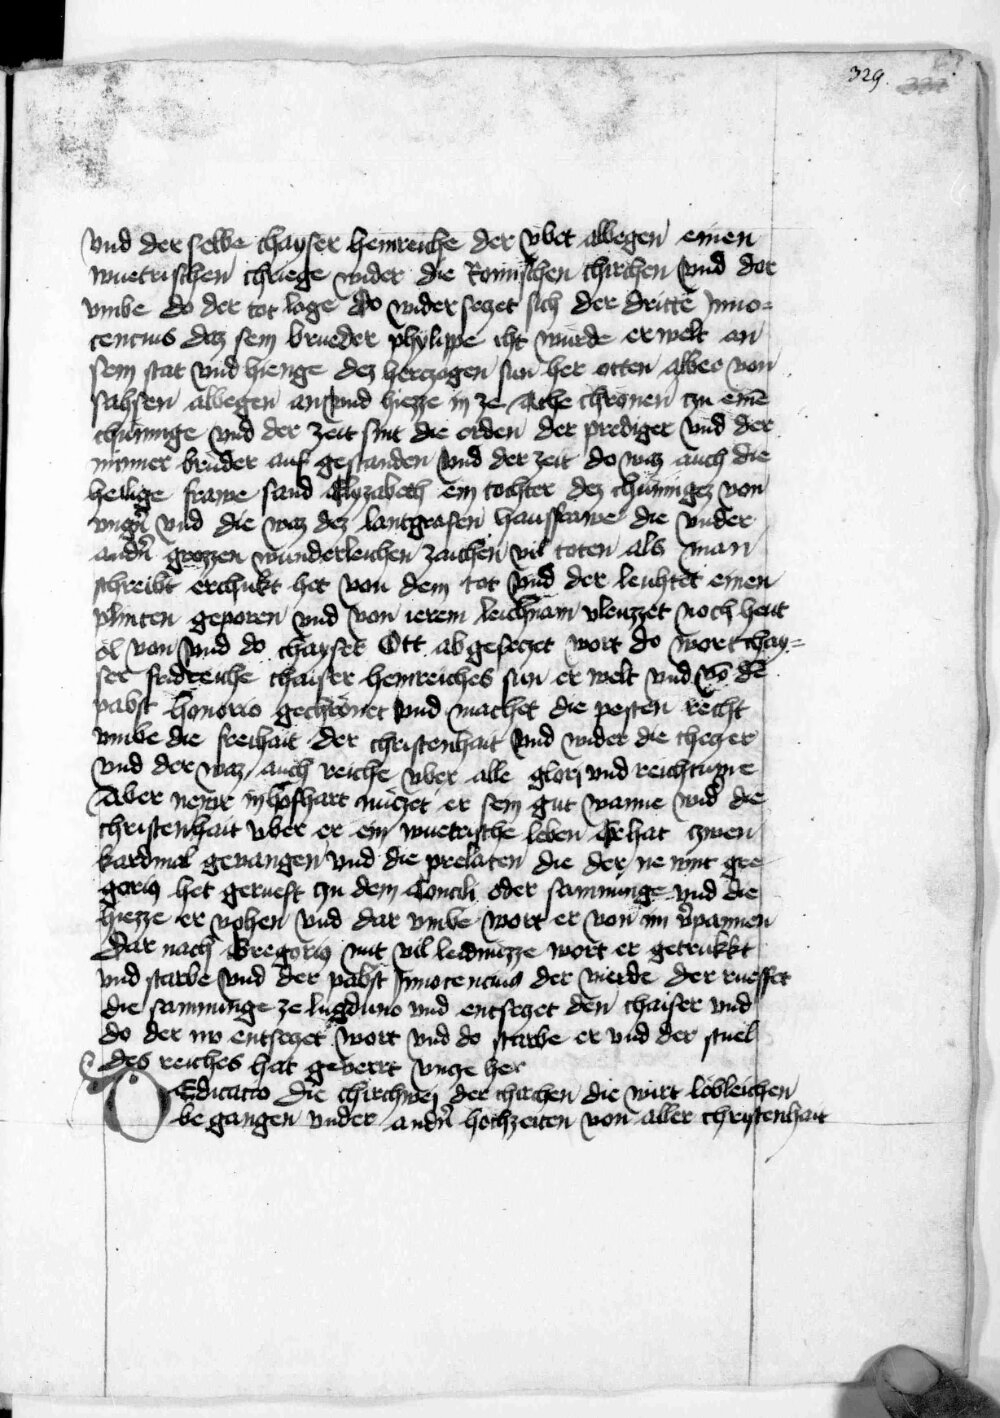 329.
vnd der selbe chayser heinreiche der vbet albegen einen
wuetrischen chriege wider die Romischen chirchen vnd dor
vmbe do der tot lage do wider seczet sich der dritte Inno-
cencius daz sein brueder phylippe iht wurde erwelt an
sein stat vnd hienge dez herczogen sun her otten albeg von
sahsen albegen an vnd hiezze in ze Ache chronen czu eine
chuninge vnd der zeit sint die orden der prediger vnd der
minner bruder auf gestanden vnd der zeit do waz auch die
heilige frawe sand Elyzabeth ein tochter dez chuningez von
vngern vnd die waz dez lantgrafen hausfrawe die vnder
andern grozzen wunderleichen zaichen vil toten als man
schreibt erchukt het von dem tot vnd der leuhtet einen
plinten geporen vnd von ierem leichnam vleuzzet noch heut
ol von vnd do chayser Ott abgeseczet wort do wort chay-
ser fridreiche chaiser heinreiches sun er welt vnd vo de
pabst honorio gechronet vnd machet die pesten recht
vmbe die freihait der christenhait vnd wider die checzer
vnd der waz auch reiche vber alle glori vnd reichtume
Aber newr in hofhart nuczet er sein gut wanne wider die
christenhait vber er ein wuetrische leben Er hat czwen
kardinal gevangen vnd die prelaten die der ne nint gre
gorius het geruest czu dem Concili oder samnunge vnd die
hiezze er vohen vnd dar vmbe wort er von im verpannen
Dar nach Gregorius mit vil leidnuzze wort er getrukkt
vnd starbe vnd der pabst Innocencius der vierde der rueffet
die samnunge ze lugduno vnd entseczet den chaiser vnd
do der nu entseczet wort vnd do starbe er vnd der stuel
des reiches hat geverrt vncze her
DEdicacio die chirchwei der chirchen die wirt lobleichen
be gangen vnder andern hochzeiten von aller christenhait